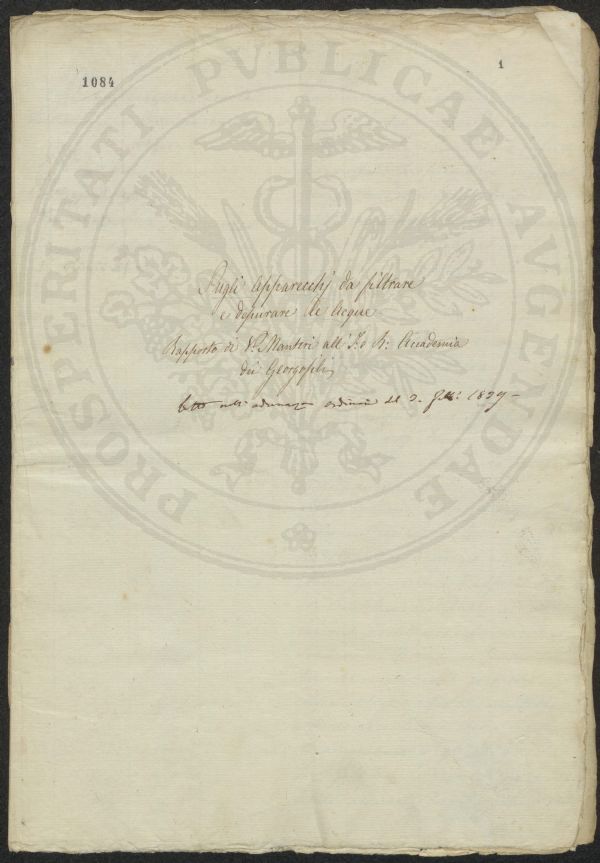 1
1084
PROSPERITATI PVBLICAE AVGENDAE
Sugli Apparecchj da filtrare
e depurare le Acque
Rapporto di V. Manteri all' I. e R. Accademia
dei Georgofili
letto nell' adunanza ordinaria del 2. 1829